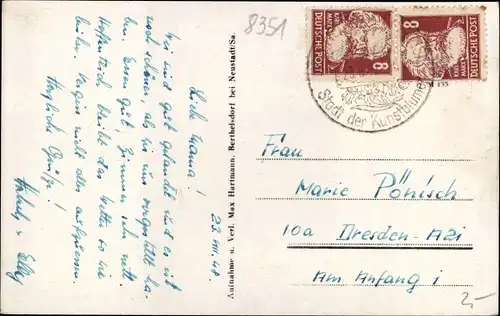 8351
DEUTSCHE POST
KARL MARX
8
DEUTSCHE POST
KARL MARX
8
M 135
Stadt der Kunstblume
23. VIII. 48
Liebe Mama!
Wir sind gut gelandet und es ist
noch schöner, als wir uns vorgestellt ha-
ben. Essen gut, Zimmer sehr nett.
Hoffentlich bleibt das Wetter so wie
heute. Vergiss nicht alles aufzuessen.
Herzliche Grüße!
Aufnahme u. Verl. Max Hartmann, Berthelsdorf bei Neustadt/Sa.
Frau
Marie Pönisch
10a Dresden-A21
Am Anfang 1
2,-